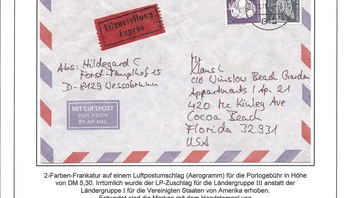 Eilzustellung
Exprès
Abs: Hildegard C
Forst-Templhof 15
D-8129 Wessobrunn
MIT LUFTPOST
PAR AVION
BY AIR MAIL
Klaus L
c/o Winslow Beach Garden
Appartments / Ap. 21
420 Mc Kinley Ave
Cocoa Beach
Florida 32931
USA
2-Farben-Frankatur auf einem Luftpostumschlag (Aerogramm) für die Portogebühr in Höhe
von DM 5,30. Irrtümlich wurde der LP-Zuschlag für die Ländergruppe III anstatt der
Ländergruppe I für die Vereinigten Staaten von Amerika erhoben.
Entwertet sind die Marken mit dem Handstempel von